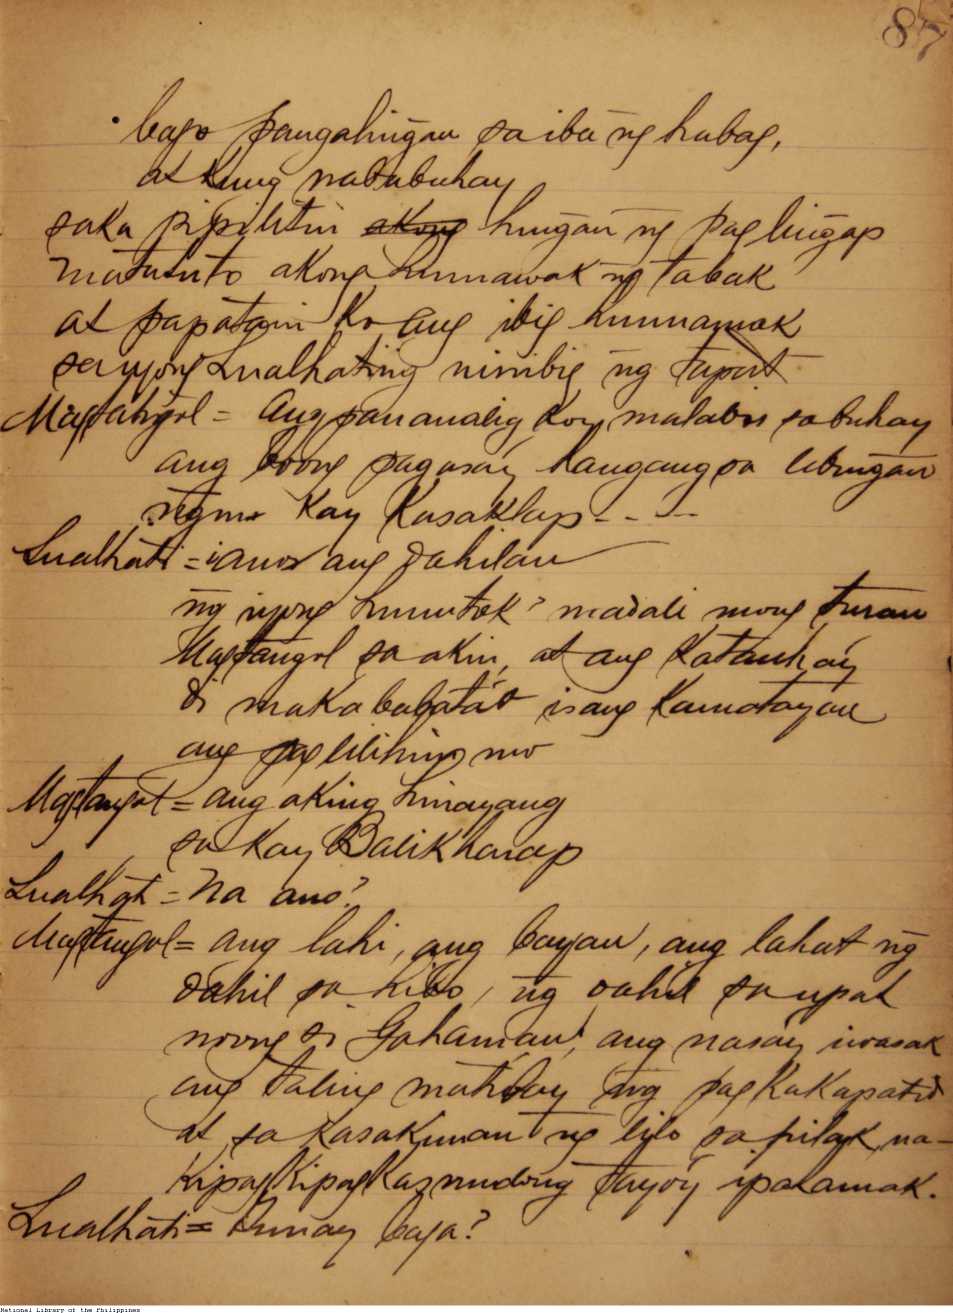 87
bago pangahiñgan sa iba ng habag,
at kung nabubuhay
saka pipilitin akong huñgan ng pagliñgap
matututo akong humawak ng tabak
at papatain ko ang ibig humamak
sa iyong Lualhating niribig ng tapat
Magtangol = Ang pananalig koy malabis sa buhay
ang boong pagasa'y hanga ng sa libiñgan
ngm kay kasaklap - - - -
Lualhati = ¿anor ang dahilan
ng iyong humutok? madali mong turan
Magtangol sa akin, at ang katauha'y
di makababatá't isang kamatayan
ang paglilihim mo
Magtangol = ang aking hinayang
sa kay Balikharap
Lualhati = Na ano?
Magtangol = ang lahi, ang bayan, ang lahat ng
dahil sa kibo, ng dahil sa upat
noong si Gahaman, ang nasa'y iwasak
ang taling matibay ng pagkakapatid
at sa kasakiman ng lilo sa pilak, na-
kipag kaz mudong tayo'y ipalamak.
Lualhati = tunay baga?
National Library of the Philippines